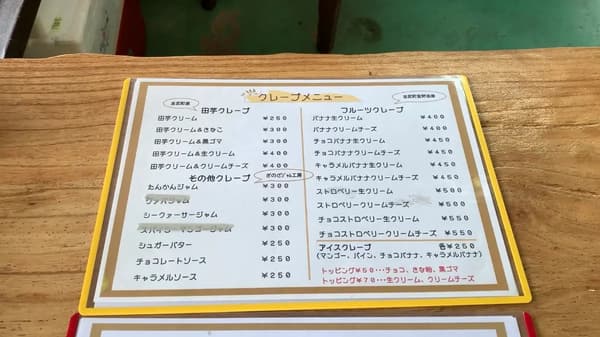 クレープメニュー
金武町産
田芋クレープ
田芋クリーム ¥250
田芋クリーム&きなこ ¥300
田芋クリーム&黒ゴマ ¥300
田芋クリーム&生クリーム ¥400
田芋クリーム&クリームチーズ ¥400
その他クレープ
ぎのざジャム工房
たんかんジャム ¥300
グァバジャム ¥300
シークァーサージャム ¥300
¥300
シュガーバター ¥250
チョコレートソース ¥250
キャラメルソース ¥250
フルーツクレープ
バナナ生クリーム ¥400
バナナクリームチーズ ¥400
チョコバナナ生クリーム ¥450
チョコバナナクリームチーズ ¥450
キャラメルバナナ生クリーム ¥450
キャラメルバナナクリームチーズ ¥450
ストロベリー生クリーム ¥500
ストロベリークリームチーズ ¥500
チョコストロベリー生クリーム ¥550
チョコストロベリークリームチーズ ¥550
アイスクレープ 各¥250
(マンゴー、パイン、チョコバナナ、キャラメルバナナ)
トッピング¥50…チョコ、きな粉、黒ゴマ
トッピング¥70…生クリーム、クリームチーズ